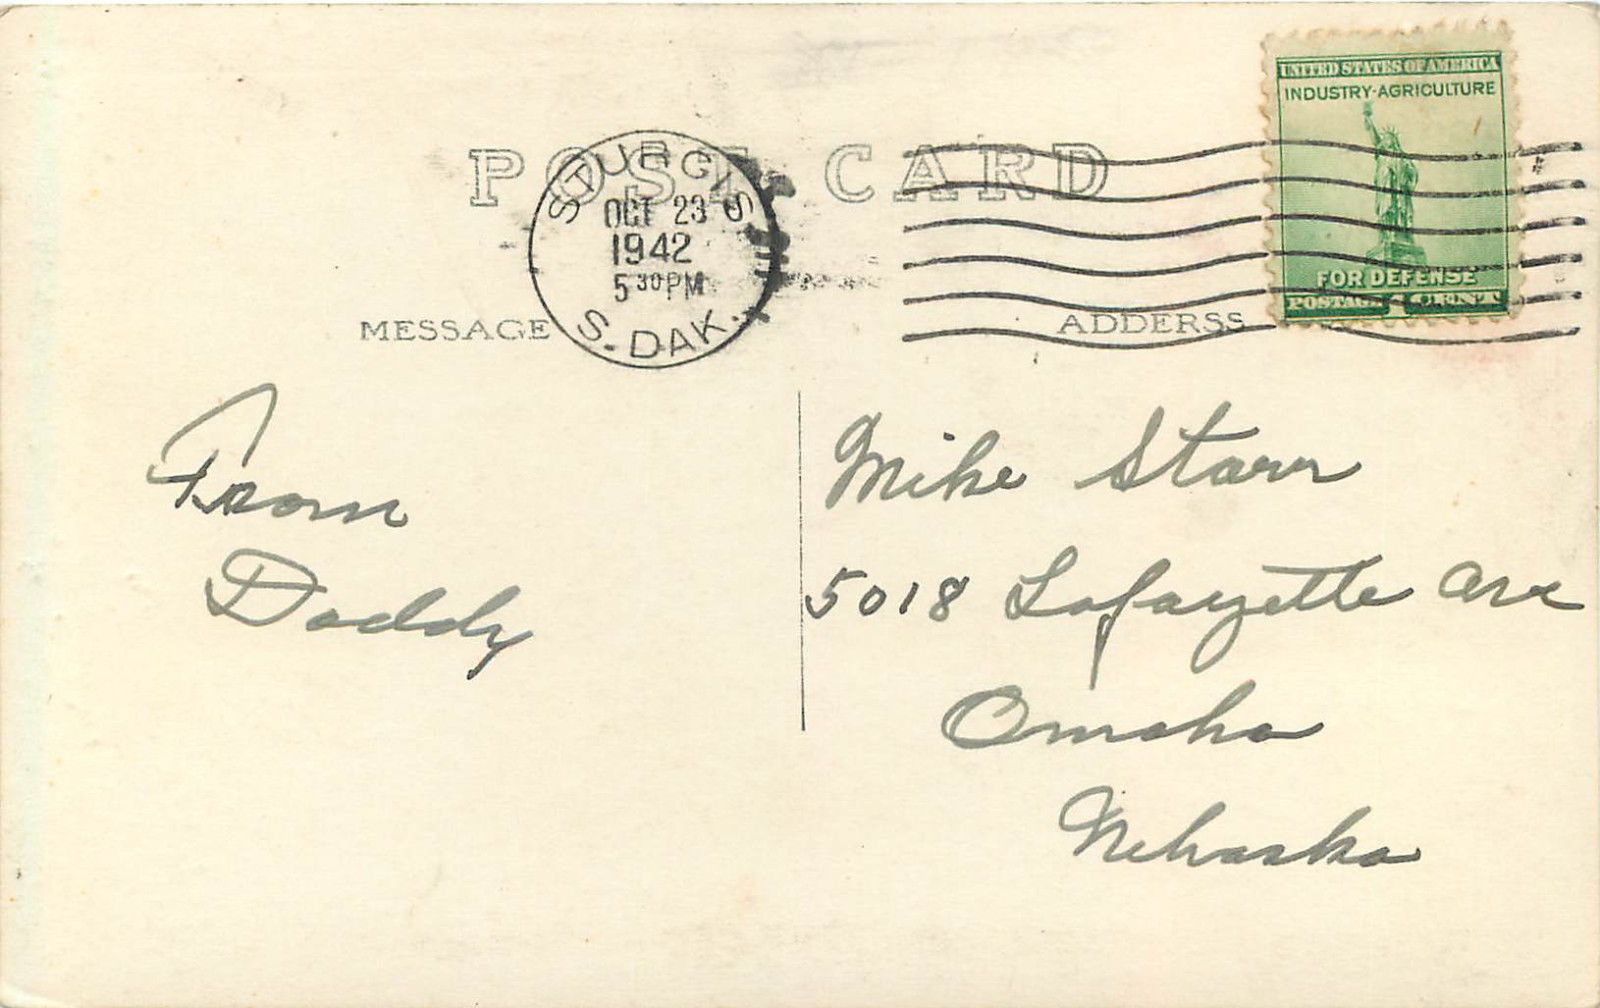 UNITED STATES OF AMERICA
INDUSTRY-AGRICULTURE
FOR DEFENSE
POSTAGE 1 CENT
POST CARD
STURGIS
OCT 23
1942
5 30 PM
S. DAK.
MESSAGE
ADDERSS
From
Daddy
Mike Starr
5018 Lafayette Ave
Omaha
Nebraska